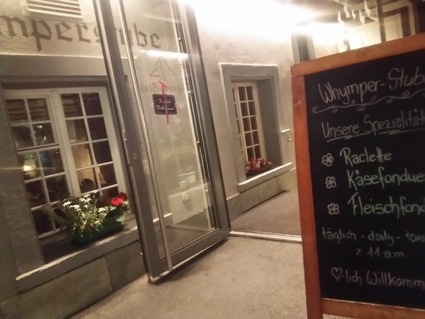 mperstube
Whymper-Stube
Unsere Spezialitä
Raclette
Käsefondue
Fleischfond
täglich - daily - tous
> 11 a.m.
♡-lich Willkomm